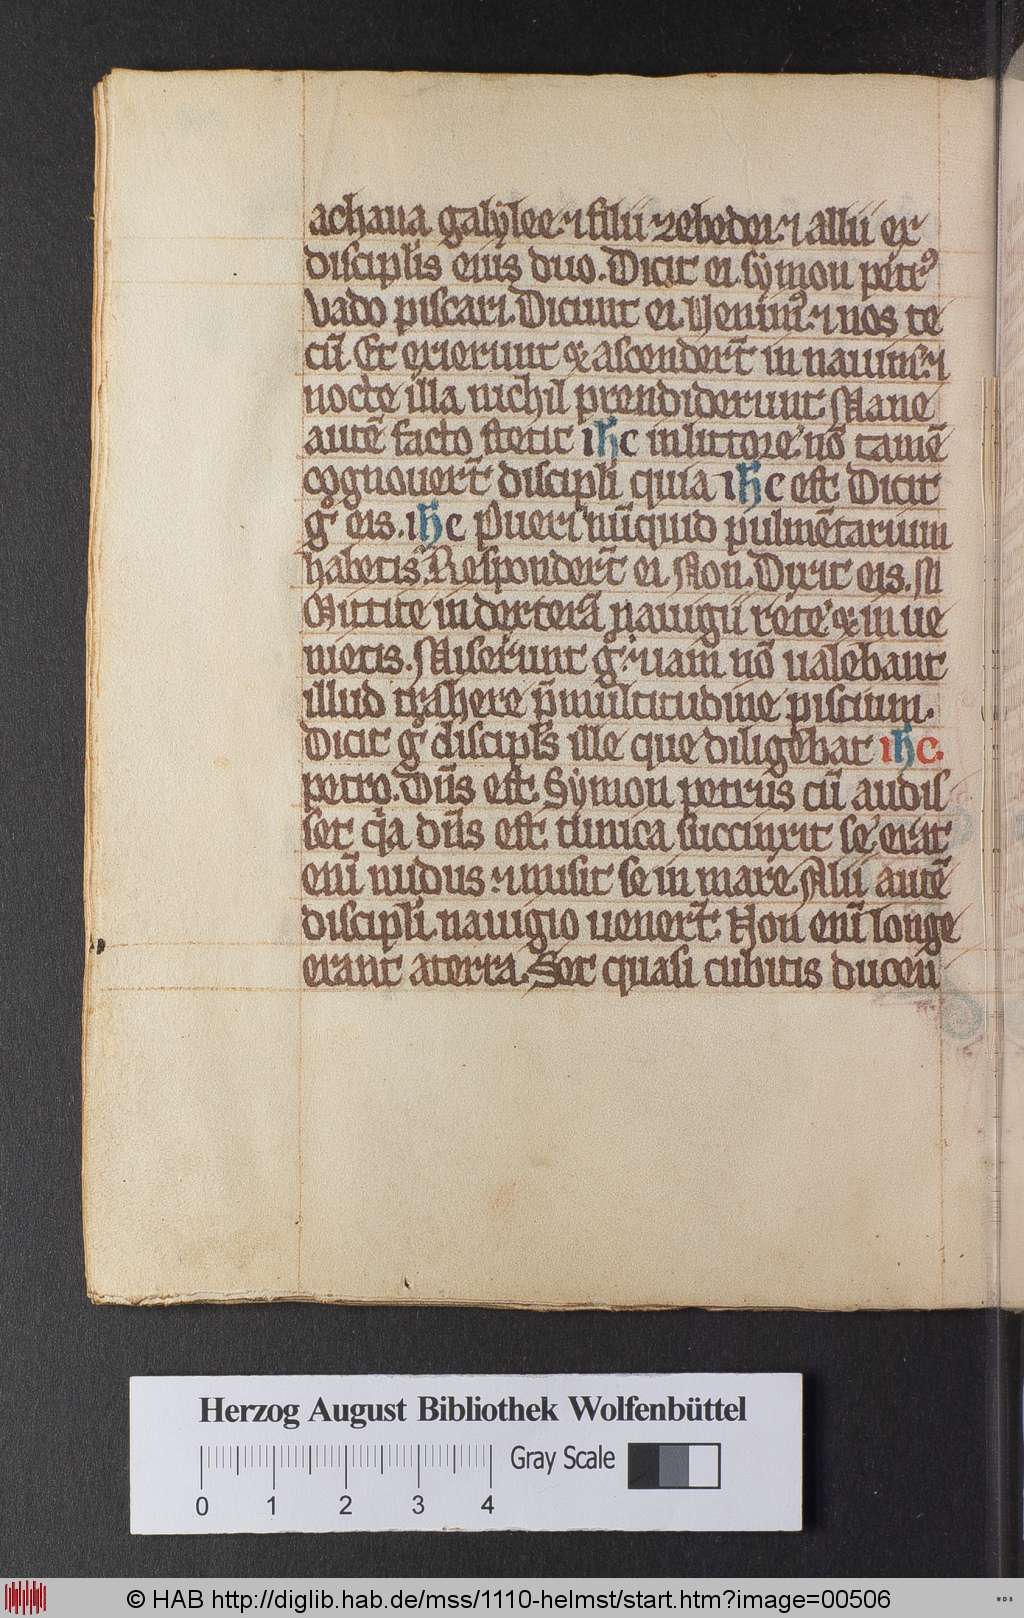 achana galylee ⁊ filii zebedei ⁊ allii ex
discipl̓is eius duo. Dicit ei symon petrꝰ
Vado piscari. Dicunt ei. Venimꝰ ⁊ nos te
cū Et exierunt & ascendert̄ in nauim ⁊
nocte illa nichil prendiderunt. Mane
autē facto stetit ihc in littore nō tamē
cognouert̄ discipli quia ihc est. Dicit
gͦ eis. ihc Pueri nūquid pulmētarium
habetis. Respondert̄ ei. Non. Dixit eis. M
Mittite in dexterā nauigii rete & in ue
nietis. Miserunt gͦ ⁊ iam nō ualebant
illud trahere p̄ multitudine piscium.
Dicit gͦ discipl̓s ille que diligebat ihc.
petro. Dn̄s est. Symon petrus cū audis
set qͥa dn̄s est. tunica succinxit se erat
enī nudus ⁊ misit se in mare. Alii autē
discipli nauigio uenert̄. Non enī longe
erant a terra. Set quasi cubitis ducen
Herzog August Bibliothek Wolfenbüttel
Gray Scale
0 1 2 3 4
© HAB http://diglib.hab.de/mss/1110-helmst/start.htm?image=00506